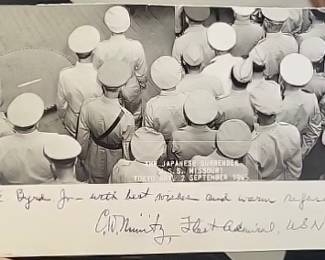 THE JAPANESE SURRENDER
U.S.S. MISSOURI
TOKYO BAY, 2 SEPTEMBER 1945
Byrd Jr — with best wishes and warm regards
C.W. Nimitz, Fleet Admiral, USN